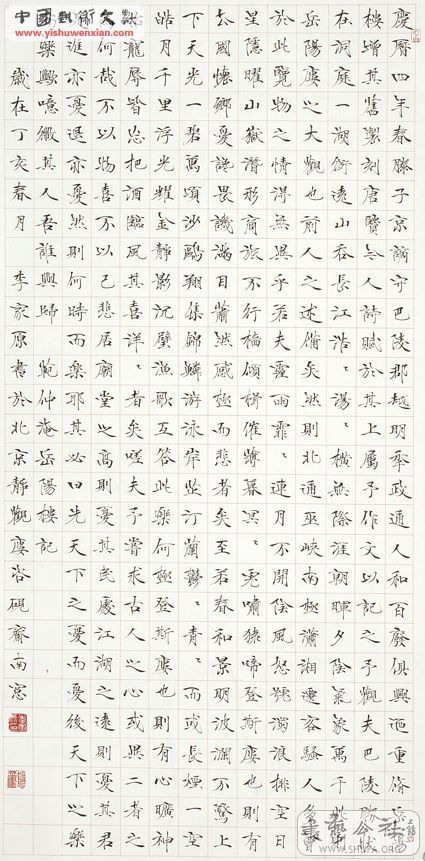 中國藝術文獻
www.yishuwenxian.com
慶曆四年春滕子京謫守巴陵郡越明年政通人和百廢俱興迺重修岳陽
樓增其舊製刻唐賢今人詩賦於其上屬予作文以記之予觀夫巴陵勝狀
在洞庭一湖銜遠山吞長江浩﹑湯﹑橫無際涯朝暉夕陰氣象萬千此則
岳陽樓之大觀也前人之述備矣然則北通巫峽南極瀟湘遷客騷人多會
於此覽物之情得無異乎若夫霪雨霏﹑連月不開陰風怒號濁浪排空日
星隱曜山嶽潛形商旅不行檣傾楫催薄暮冥﹑虎嘯猿啼登斯廔也則有
去國懷鄉憂讒畏譏滿目蕭然感極而悲者矣至若春和景明波瀾不驚上
下天光一碧萬頃沙鷗翔集錦鱗游泳岸芷汀蘭鬱﹑青﹑而或長煙一空
皓月千里浮光耀金靜影沉璧漁歌互答此樂何極登斯廔也則有心曠神
怡寵辱皆忘把酒臨風其喜洋﹑者矣嗟夫予嘗求古人之心或異二者之
為何哉不以物喜不以己悲居廟堂之高則憂其民處江湖之遠則憂其君
是進亦憂退亦憂然則何時而樂耶其必曰先天下之憂而憂後天下之樂
而樂歟噫微其人吾誰與歸 範仲淹岳陽樓記
歲在丁亥春月 李家原書於北京靜觀廔容硯齋南窓
書藝公社
WWW.SHUFA.ORG